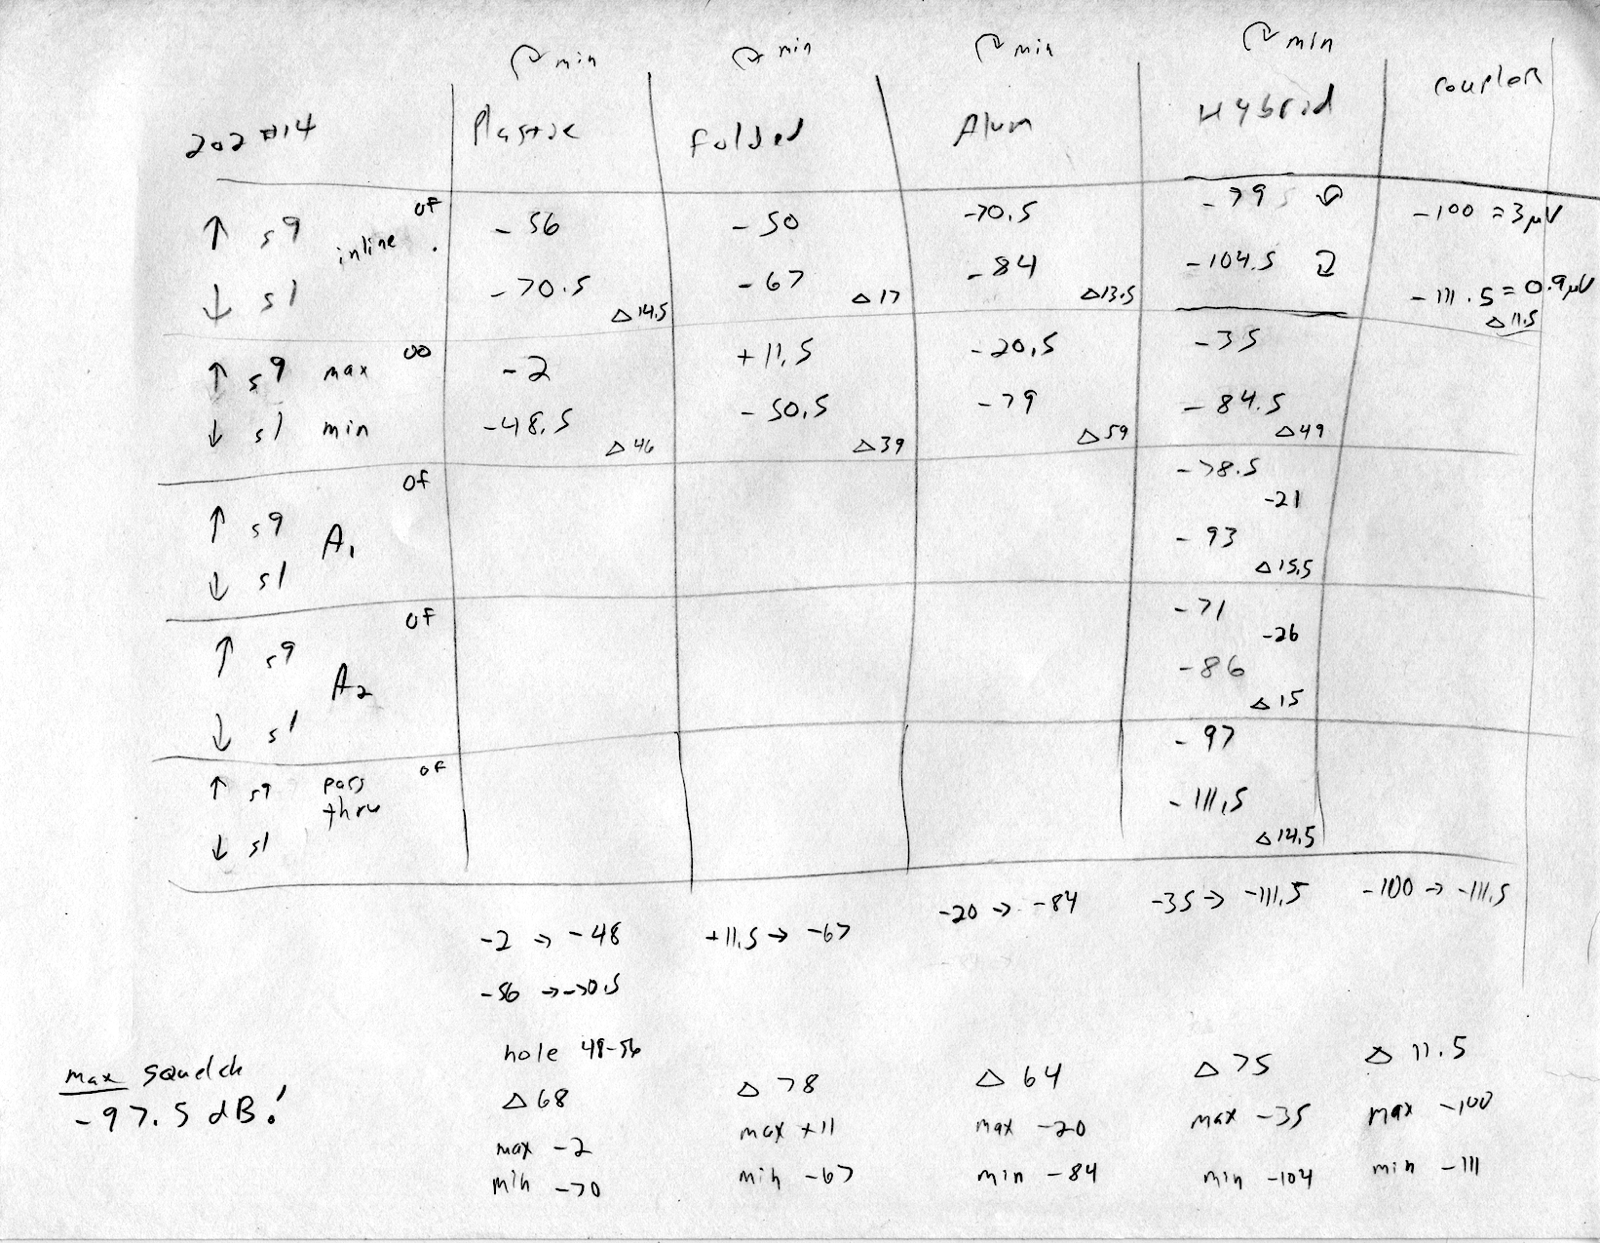 min min min min
202 #14 Plastic Folded Alum Hybrid Coupler
↑ s9 OF -56 -50 -70.5 -79.5 -100 = 3µV
inline
↓ s1 -70.5 Δ14.5 -67 Δ17 -84 Δ13.5 -104.5 -111.5 = 0.9µV
Δ11.5
↑ s9 max 00 -2 +11.5 -20.5 -35
↓ s1 min -48.5 Δ46 -50.5 Δ39 -79 Δ59 -84.5 Δ49
OF -78.5
↑ s9 A1 -21
↓ s1 -93 Δ15.5
OF -71
↑ s9 A2 -26
-86
↓ s1 Δ15
↑ s9 pass thru OF -97
↓ s1 -111.5 Δ14.5
-2 → -48 +11.5 → -67 -20 → -84 -35 → -111.5 -100 → -111.5
-56 → -70.5
hole 48-56
max squelch
-97.5 dB!
Δ68 Δ78 Δ64 Δ75 Δ11.5
max -2 max +11 max -20 max -35 max -100
min -70 min -67 min -84 min -104 min -111